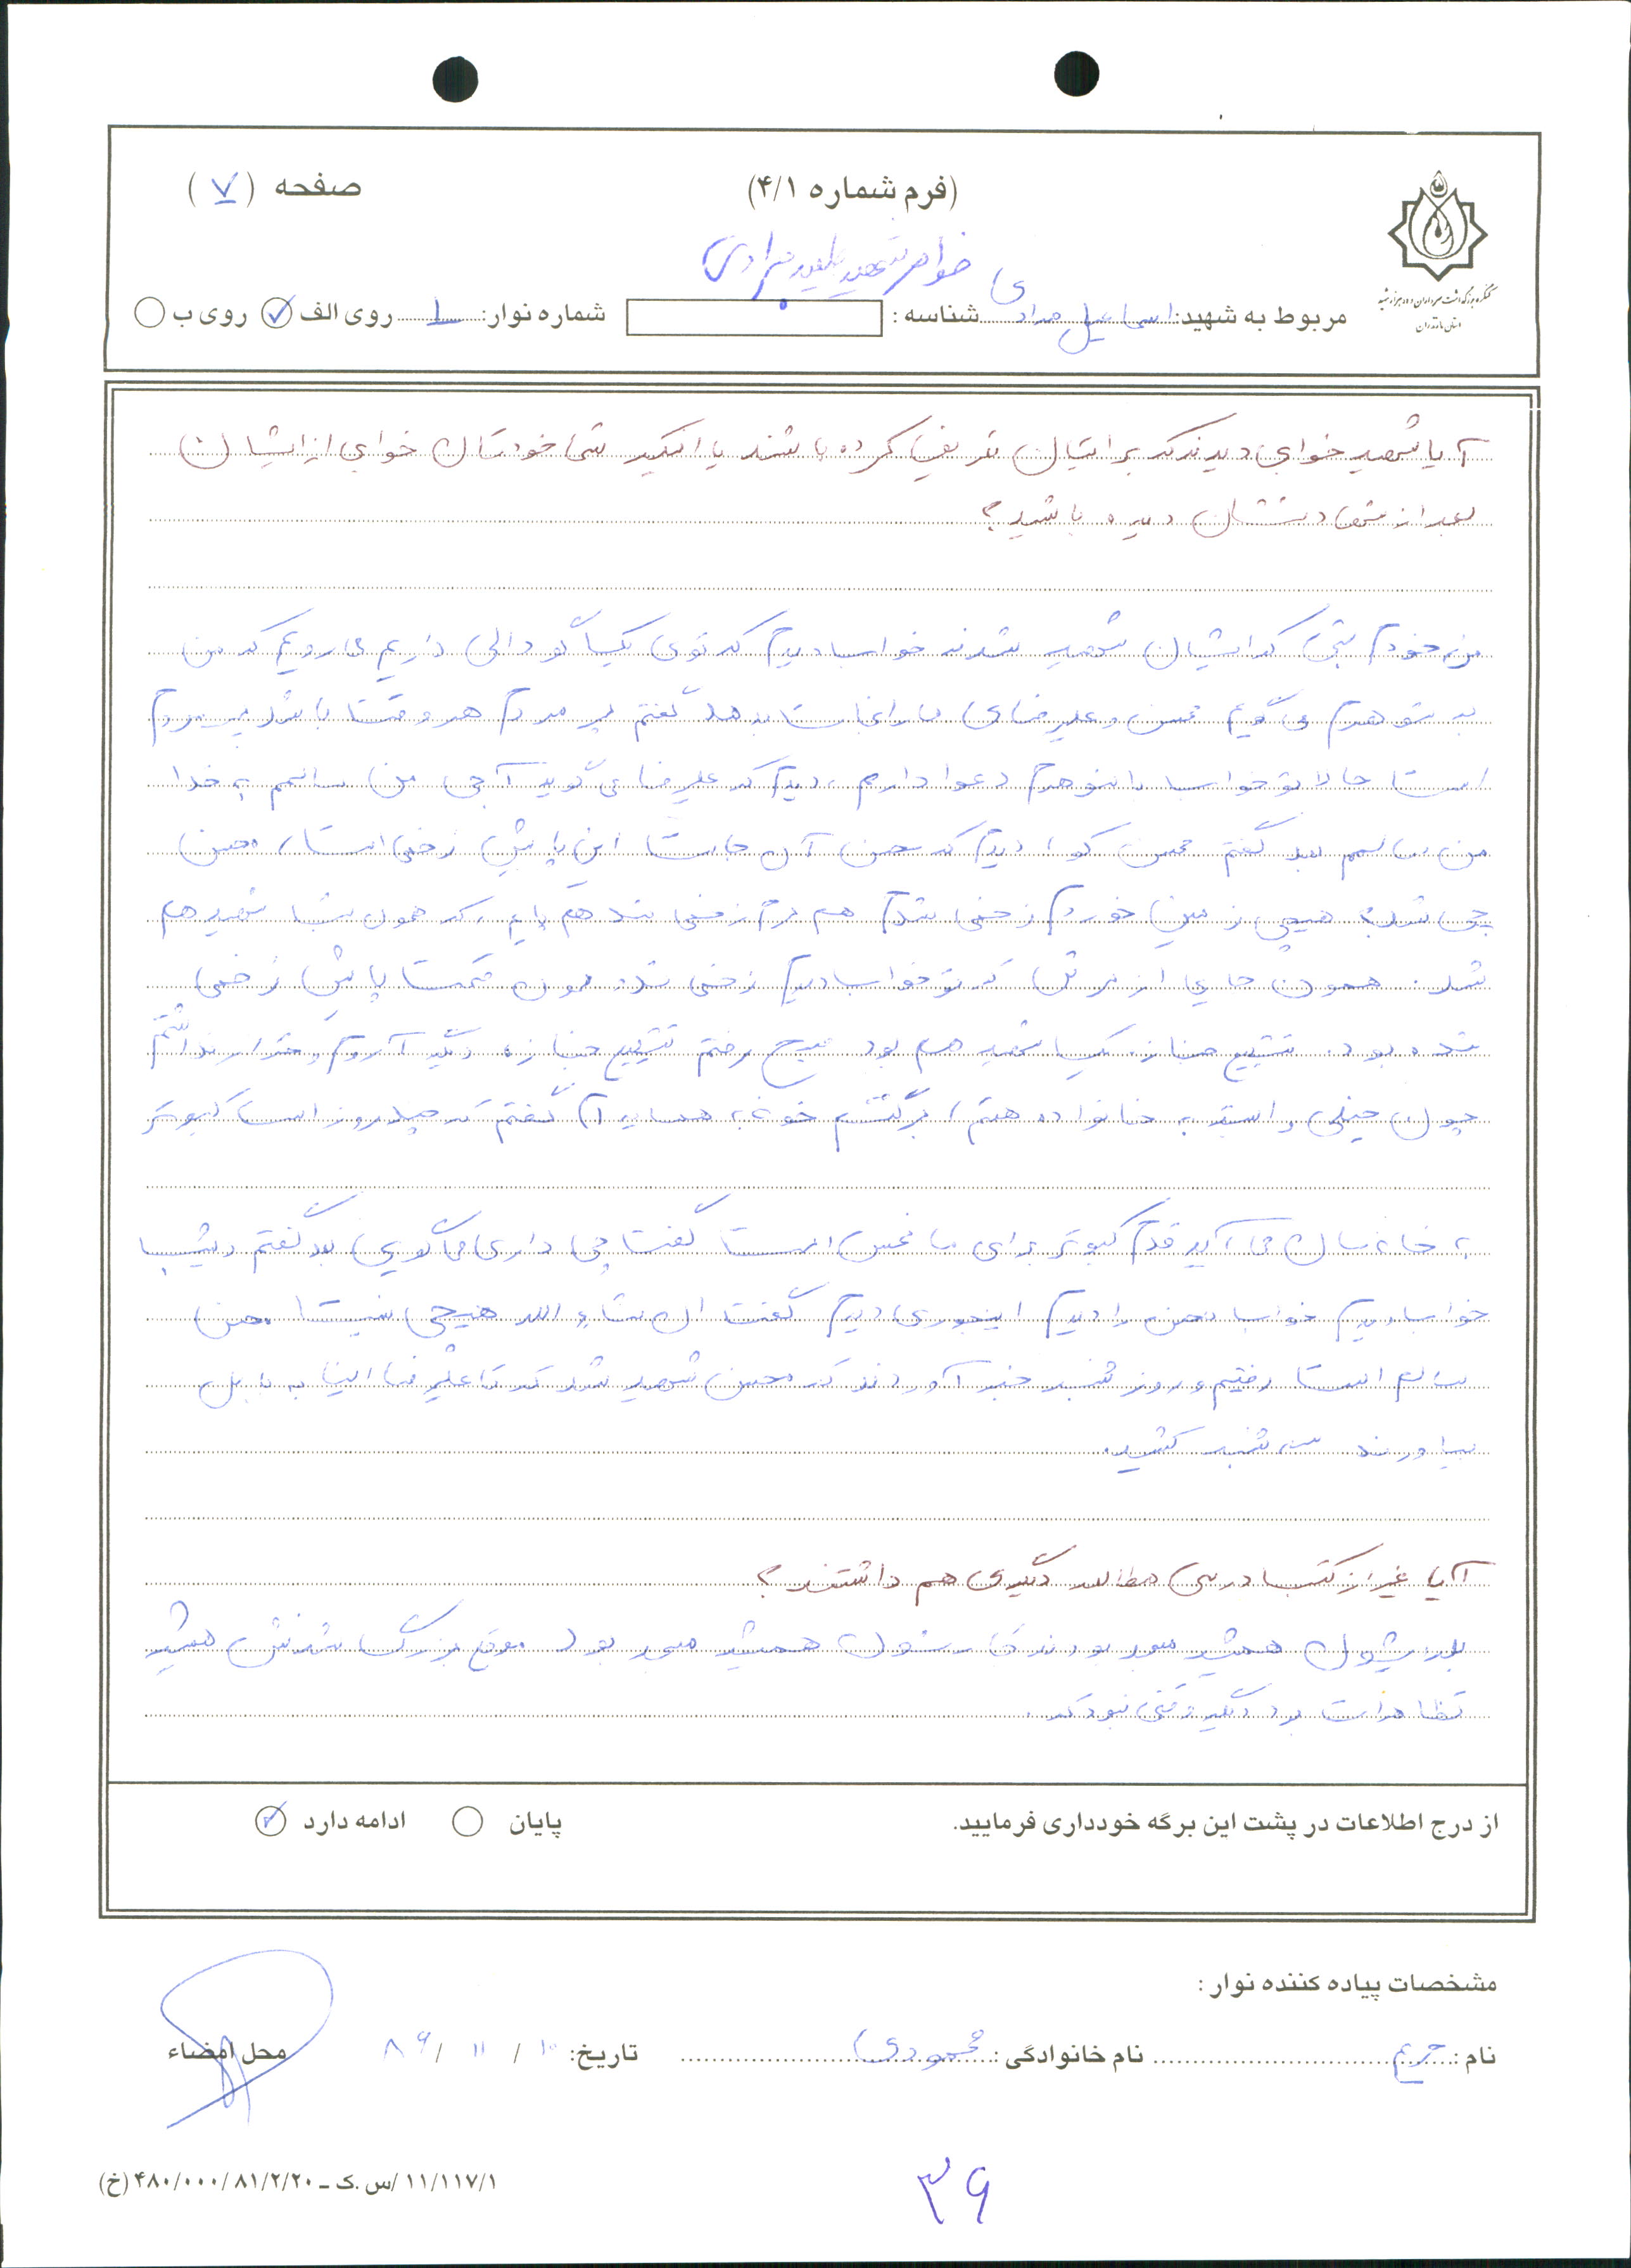 (فرم شماره ۴/۱)
صفحه (۷)
خواهر شهید
کنگره بزرگداشت سرداران و ده هزار شهید
استان مازندران
مربوط به شهید: اسماعیل مرادی شناسه: شماره نوار: ۱ روی الف روی ب
آیا شهید خوابی دیدند که برایتان تعریف کرده باشند یا اینکه شما خودتان خوابی از ایشان
بعد از شهادتشان دیده باشید؟
من خودم شبی که ایشان شهید شدند خواب دیدم که توی یک گودالی داریم می‌رویم که من
به شوهرم می‌گویم محسن و علیرضای ما بعد گفتم پدر مردم هر وقت باشد پدر مردم
است حالا تو خواب با شوهرم دعوا دارم، دیدم که علیرضا می‌گوید آجی من سالمم به خدا
من سالمم بعد گفتم محسن کو، دیدم که محسن آن جا است این پایش زخمی است، محسن
چی شد؟ هیچی زمین خوردم زخمی شدم هم سرم زخمی شد هم پایم، که همون شب شهید هم
شد. همون جایی از سرش که تو خواب دیدم زخمی شد. همون قسمت پایش زخمی
شده بود. تشییع جنازه یک شهید هم بود صبح رفتم تشییع جنازه دیگه آروم و قرار نداشتم
چون خیلی وابسته به خانواده هستم، برگشتم خونه به همسایه‌ام گفتم که چند روز است کبوتر
به خانه‌مان می‌آید قدم کبوتر برای ما نحس است گفت چی داری می‌گویی بعد گفتم دیشب
خواب دیدم خواب محسن را دیدم اینجوری دیدم گفت ان شاء الله هیچی نیست محسن
سالم است رفتیم و روز شنبه خبر آوردند که محسن شهید شد که تا علیرضا اینا به بابل
بیاورند سه شنبه کشید.
آیا غیر از کتب درسی مطالعه دیگری هم داشتند؟
بله ایشون همیشه بودند همیشه بود موقع بزرگ شدنش همیشه
تظاهرات بود دیگه وقتی نبود که.
از درج اطلاعات در پشت این برگه خودداری فرمایید.
پایان ادامه دارد
مشخصات پیاده کننده نوار:
نام: مریم نام خانوادگی: محمودی تاریخ: ۱۰ / ۱۱ / ۸۶ محل امضاء
۱۱/۱۱۷/۱ /س.ک ـ ۴۸۰/۰۰۰/۸۱/۲/۲۰ (خ)
۳۶